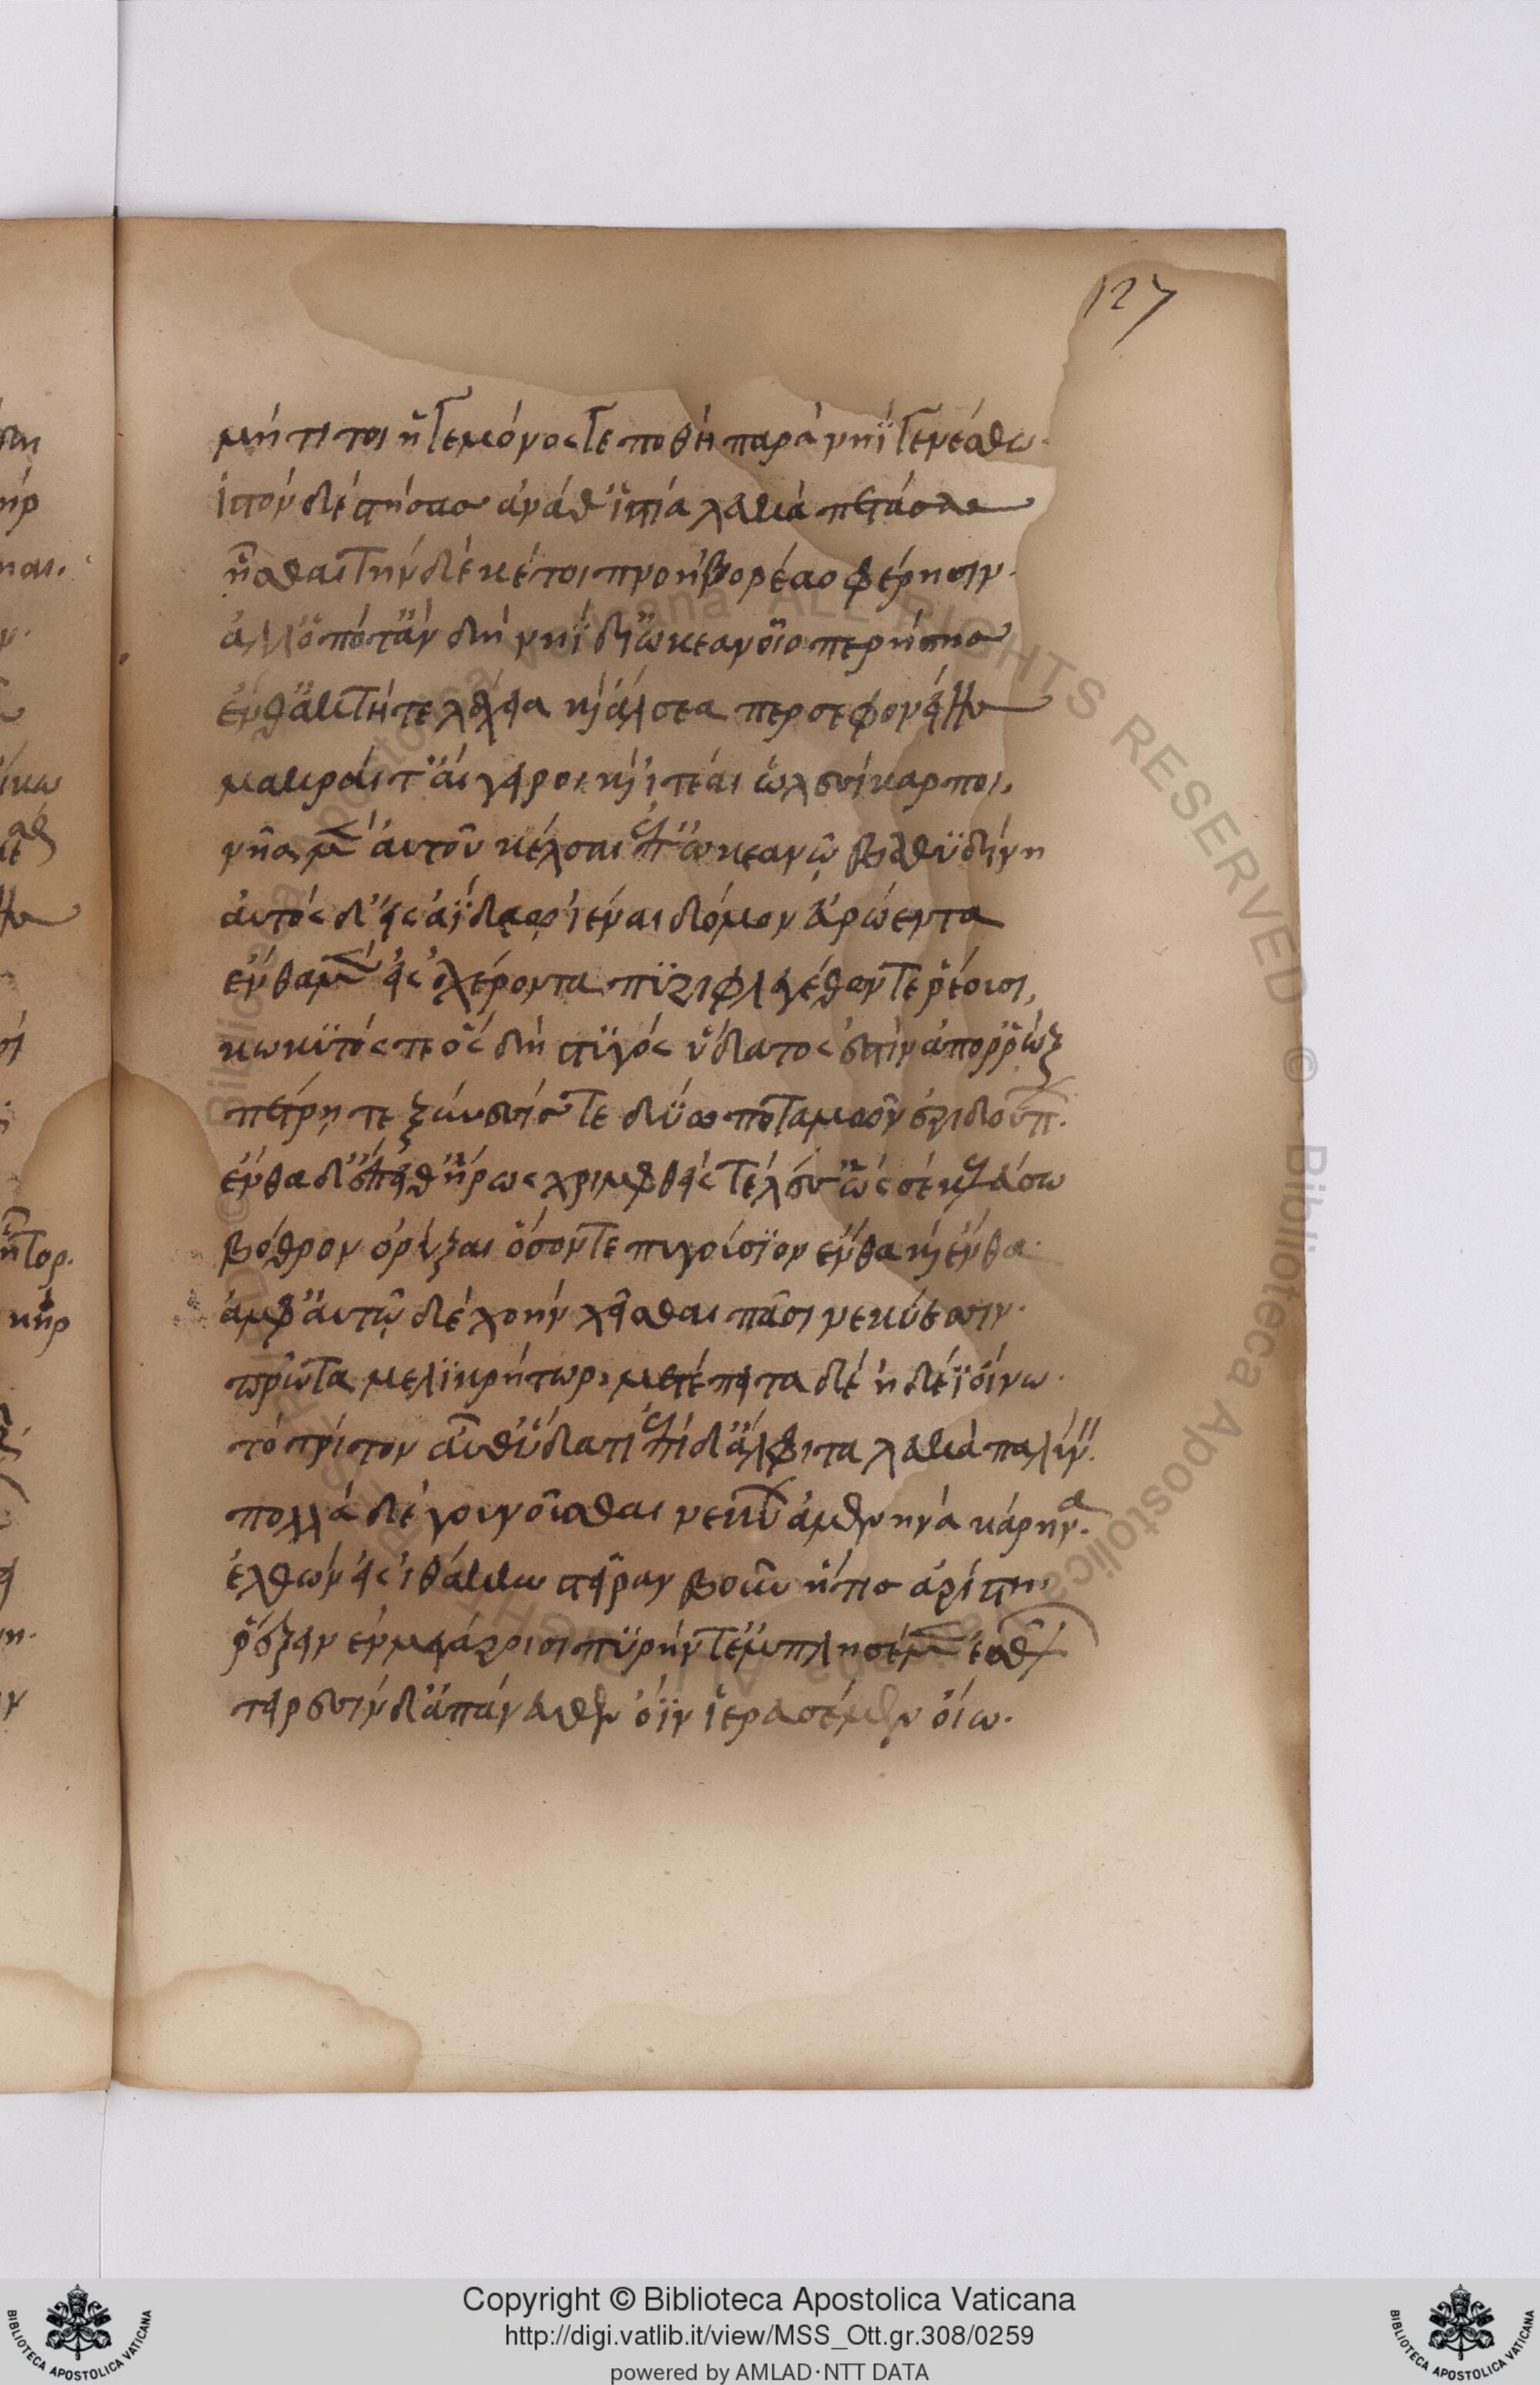 127
μή τί τοι ἡγεμόνος γε ποθὴ παρὰ νηῒ γενέσθω.
ἱστὸν δὲ στήσας ἀνά θ' ἱστία λευκὰ πετάσας
ἧσθαι· τὴν δέ κέ τοι πνοὴ βορέαο φέρησιν.
ἀλλ' ὁπότ' ἂν δὴ νηῒ δι' ὠκεανοῖο περήσης
ἔνθ' ἀκτή τε λάχεια καὶ ἄλσεα περσεφονείης
μακραί τ' αἴγειροι καὶ ἰτέαι ὠλεσίκαρποι,
νῆα μὲν αὐτοῦ κέλσαι ἐπ' ὠκεανῷ βαθυδίνη
αὐτὸς δ' εἰς ἀΐδεω ἰέναι δόμον εὐρώεντα
ἔνθα μὲν εἰς ἀχέροντα πυριφλεγέθων τε ῥέουσι,
κωκυτός τε ὃς δὴ στυγὸς ὕδατος ἐστὶν ἀπορρώξ
πέτρη τε ξύνεσίς τε δύω ποταμῶν ἐριδούπ.
ἔνθα δ' ἔπειθ' ἥρως χριμφθεὶς πέλας ὥς σε κελεύω
βόθρον ὀρύξαι ὅσον τε πυγούσιον ἔνθα καὶ ἔνθα.
ἀμφ' αὐτῷ δὲ χοὴν χεῖσθαι πᾶσι νεκύεσσιν.
πρῶτα μελικρήτωρι, μετέπειτα δὲ ἡδέϊ οἴνω.
τὸ τρίτον αὖθ' ὕδατι ἐπὶ δ' ἄλφιτα λευκὰ παλύν.
πολλὰ δὲ γουνοῦσθαι νεκύων ἀμενηνὰ κάρηνα.
ἐλθὼν εἰς ἰθάκην στεῖραν βοῦν ἥτις ἀρίστη,
ῥέξειν ἐν μεγάροισι πυρήν τ' ἐμπλησέμεν ἐσθλ
τειρεσίη δ' ἀπάνευθεν ὄϊν ἱερευσέμεν οἴω.
Copyright © Biblioteca Apostolica Vaticana
http://digi.vatlib.it/view/MSS_Ott.gr.308/0259
powered by AMLAD·NTT DATA